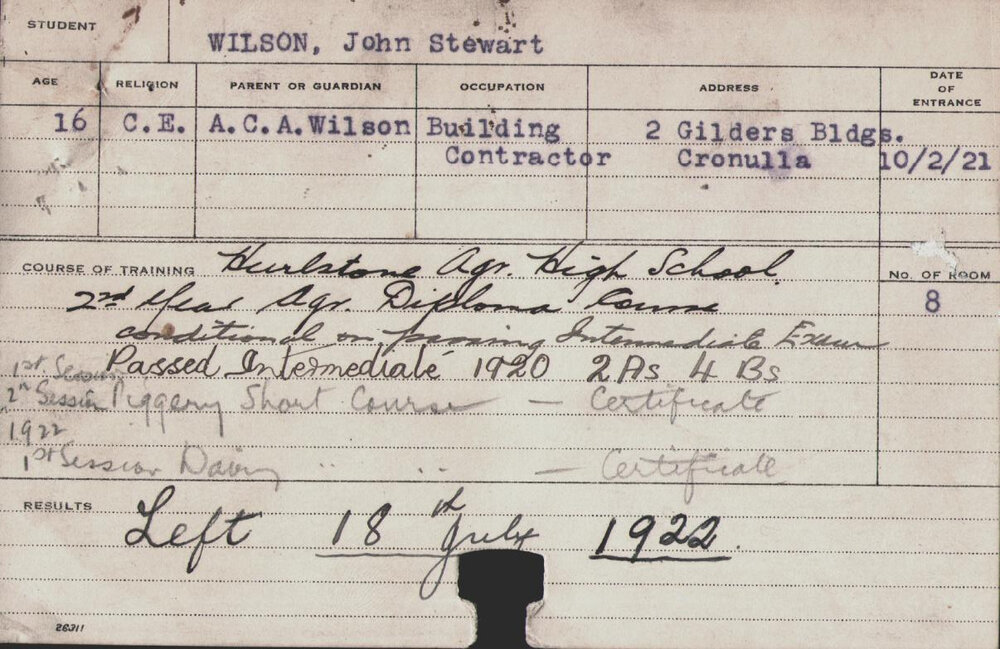 STUDENT WILSON, John Stewart
AGE RELIGION PARENT OR GUARDIAN OCCUPATION ADDRESS DATE OF ENTRANCE
16 C.E. A.C.A.Wilson Building 2 Gilders Bldgs.
Contractor Cronulla 10/2/21
COURSE OF TRAINING Hurlstone Agr. High School. No. OF ROOM
2nd Year Agr. Diploma Course 8
conditional on passing Intermediate Exam
1st Session Passed Intermediate 1920 2 As 4 Bs
2n Session Piggery Short Course — Certificate
1922
1st Session Dairy " " — Certificate
RESULTS Left 18th July 1922.
26311